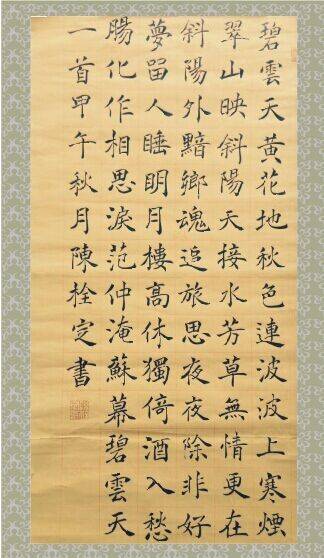 碧雲天黃花地秋色連波波上寒煙
翠山映斜陽天接水芳草無情更在
斜陽外黯鄉魂追旅思夜夜除非好
夢留人睡明月樓高休獨倚酒入愁
腸化作相思淚范仲淹蘇幕碧雲天
一首甲午秋月陳栓定書